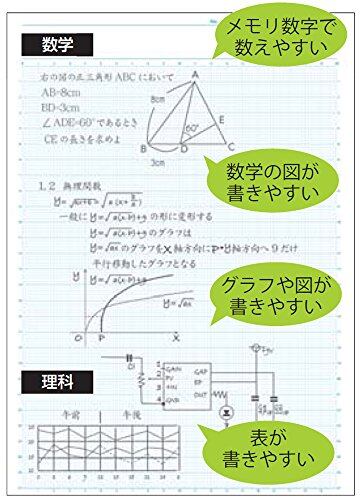 メモリ数字で
数えやすい
数学
右の図の正三角形ABCにおいて
AB=8cm
BD=3cm
∠ADE=60°であるとき
CEの長さを求めよ
A
8cm
60°
E
B
D
C
3cm
数学の図が
書きやすい
1.2 無理関数
一般に y=√a(x-p)+q の形に変形する
y=√a(x-p)+q のグラフは
y=√ax のグラフを X 軸方向に P・y 軸方向へ 9 だけ
平行移動したグラフとなる
y=√a(x-p)+q
y=√ax
グラフや図が
書きやすい
O
P
X
理科
1
2
3
4
GAIN
GND
OUT
午前
午後
表が
書きやすい